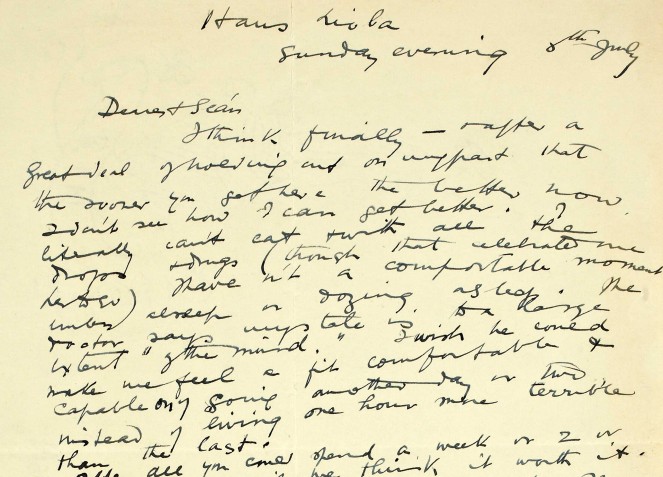 Haus Lioba
Sunday evening 8th July
Dearest Seán
I think finally — & after a
great deal of holding out on my part that
the sooner you get here the better now.
I don't see how I can get better. I
literally can't eat & with all the
drops & drugs (though that celebrated one
haven't a comfortable moment
unless asleep or dozing asleep. The
doctor says my state is to a large
extent "of the mind." I wish he could
make me feel a fit comfortable &
capable of going another day or two
instead of living one hour more terrible
than the last.
all you could spend a week or 2 or
think it worth it.